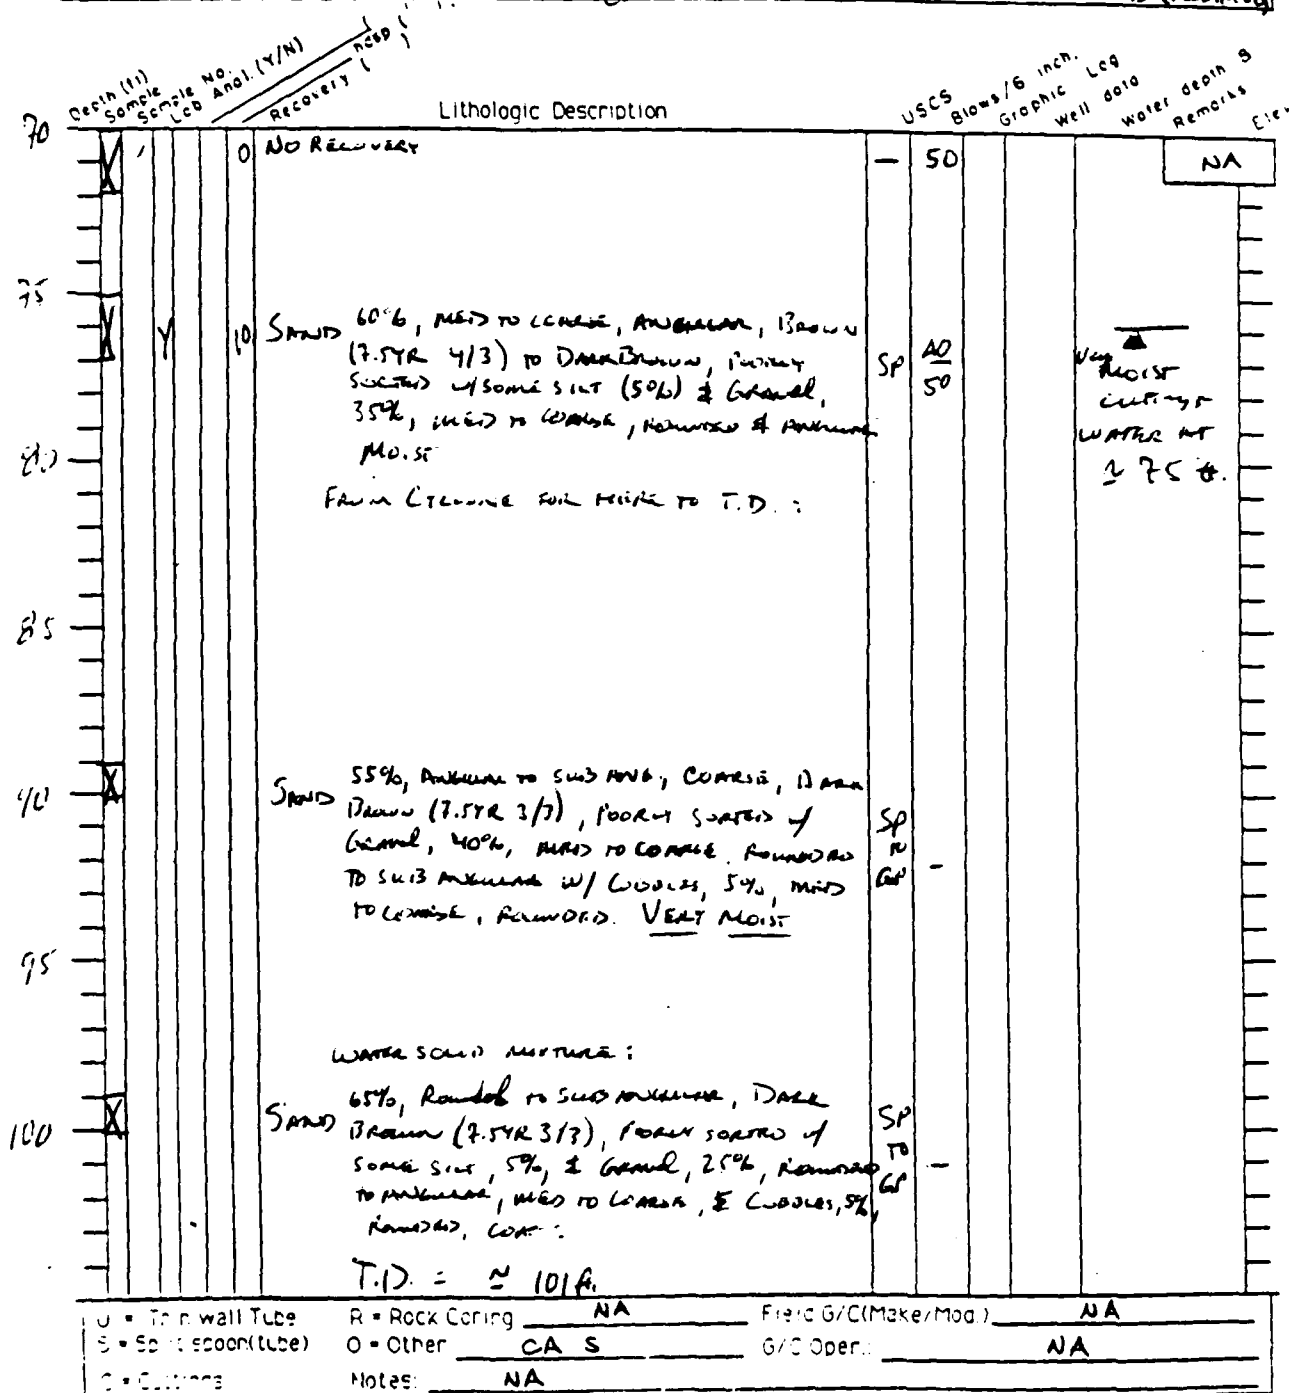 Depth (ft)
Sample
Sample No.
Lab Anal. (Y/N)
Recovery (
Lithologic Description
USCS
Blows/6 inch.
Graphic Log
Well data
Water depth &
Remarks
70
0 NO RECOVERY — 50 NA
75
Y 10 SAND 60%, MED TO COARSE, ANGULAR, BROWN
(7.5YR 4/3) TO DARK BROWN, POORLY
SORTED W/SOME SILT (5%) & GRAVEL,
35%, MED TO COARSE, ROUNDED & ANGULAR
MOIST
SP 40
50
VERY
MOIST
CUTTINGS
WATER AT
≃ 75 ft.
80
FROM CYCLONE FOR HERE TO T.D. :
85
90
SAND 55%, ANGULAR TO SUB ANG, COARSE, DARK
BROWN (7.5YR 3/3), POORLY SORTED W/
GRAVEL, 40%, MED TO COARSE, ROUNDED
TO SUB ANGULAR W/ COBBLES, 5%, MED
TO COARSE, ROUNDED. VERY MOIST
SP
TO
GP —
95
WATER SOLID MIXTURE :
100
SAND 65%, Rounded TO SUB ANGULAR, DARK
BROWN (7.5YR 3/3), POORLY SORTED W/
SOME SILT, 5%, & GRAVEL, 25%, ROUNDED
TO ANGULAR, MED TO COARSE, & COBBLES, 5%,
ROUNDED,
SP
TO
GP —
T.D. = ≃ 101 ft.
U = Thin wall Tube R = Rock Coring NA Field G/C(Make/Mod.) NA
S = Split spoon(tube) O = Other CA S G/C Oper.: NA
C = Cuttings Notes: NA